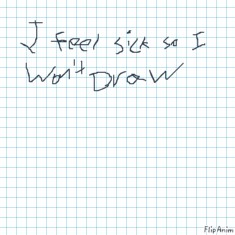 I feel sick so I
Won't Draw
FlipAnim